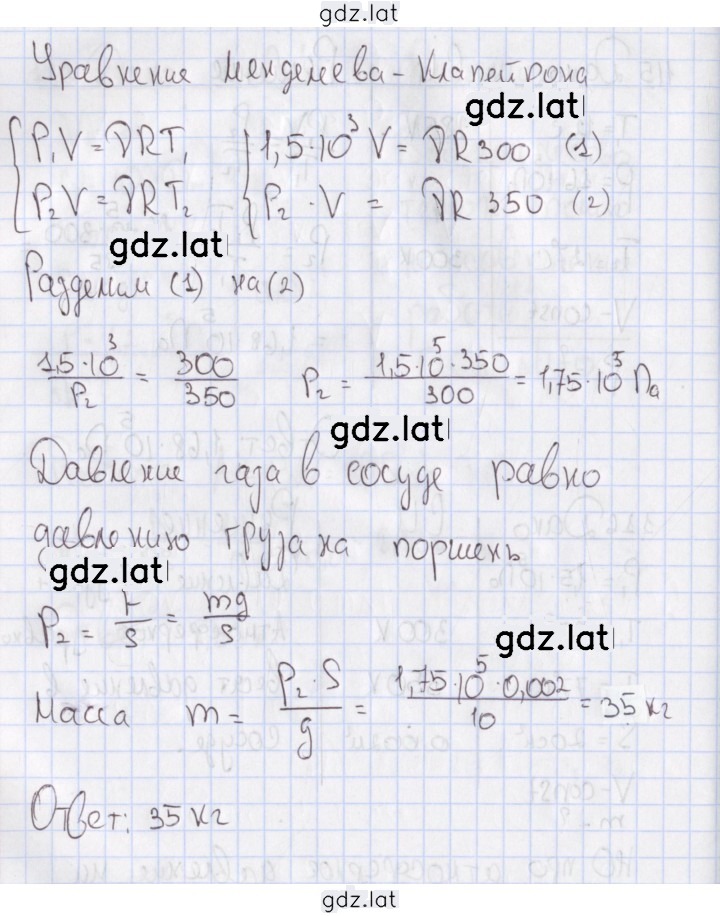 gdz.lat
Уравнение Менделеева-Клапейрона
gdz.lat
P₁V = νRT₁ 1,5·10³ V = νR300 (1)
P₂V = νRT₂ P₂ · V = νR 350 (2)
gdz.lat
Разделим (1) на (2)
1,5·10³/P₂ = 300/350 P₂ = 1,5·10⁵·350/300 = 1,75·10⁵ Па
gdz.lat
Давление газа в сосуде равно
давлению груза на поршень
gdz.lat
P₂ = F/S = mg/S
gdz.lat
Масса m = P₂·S/g = 1,75·10⁵·0,002/10 = 35 кг
Ответ: 35 кг
gdz.lat